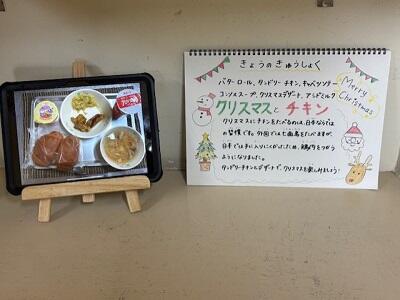 きょうのきゅうしょく
バターロール、タンドリーチキン、キャベツソテー
コンソメスープ、クリスマスデザート、アシドミルク
Merry Christmas
クリスマスとチキン
クリスマスにチキンをたべるのは、日本ならでは
の習慣です。外国では七面鳥をたべますが、
日本では手に入りにくかったため、鶏肉をつかう
ようになりました。
タンドリーチキンとデザートで、クリスマスを楽しみましょう！